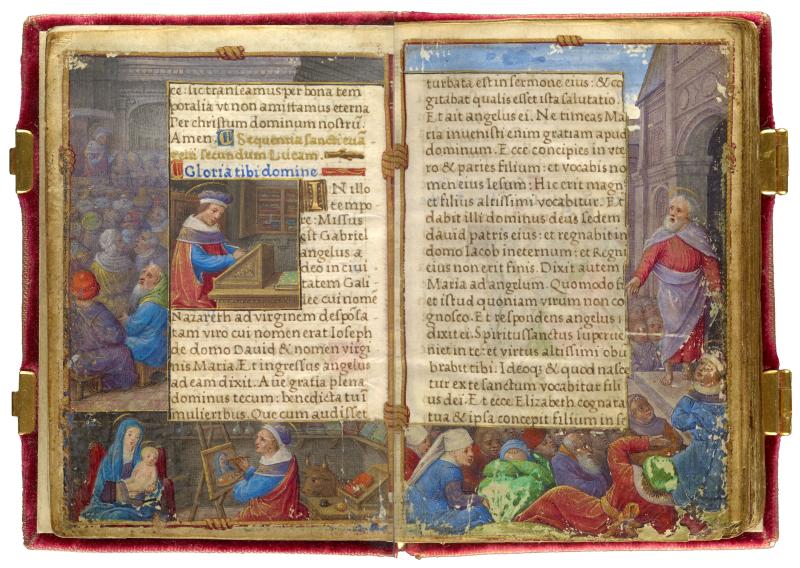 ce: sic transeamus per bona tem
poralia ut non amittamus eterna
Per christum dominum nostrū.
Amen. Sequentia sancti euā
gelii secundum Lucam.
Gloria tibi domine
IN illo
tempo
re: Missus
est Gabriel
angelus a
deo in ciui
tatem Gali
lee cui nome
Nazareth ad virginem despōsa
tam viro cui nomen erat Ioseph
de domo Dauid & nomen virgi
nis Maria. Et ingressus angelus
ad eam dixit. Aue gratia plena
dominus tecum: benedicta tu ī
mulieribus. Que cum audisset
turbata est in sermone eius: & co
gitabat qualis esset ista salutatio.
Et ait angelus ei. Ne timeas Ma
ria inuenisti enim gratiam apud
dominum. Ecce concipies in vte
ro & paries filium: et vocabis no
men eius Iesum: Hic erit magn9
et filius altissimi vocabitur. Et
dabit illi dominus deus sedem
dauid patris eius: et regnabit in
domo Iacob in eternum: et Regni
eius non erit finis. Dixit autem
Maria ad angelum. Quomodo fi
et istud quoniam virum non co
gnosco. Et respondens angelus
dixit ei. Spiritus sanctus superue
niet in te: et virtus altissimi obū
brabit tibi: Ideoq3 & quod nasce
tur ex te sanctum vocabitur fili
us dei. Et ecce Elizabeth cognata
tua & ipsa concepit filium in se